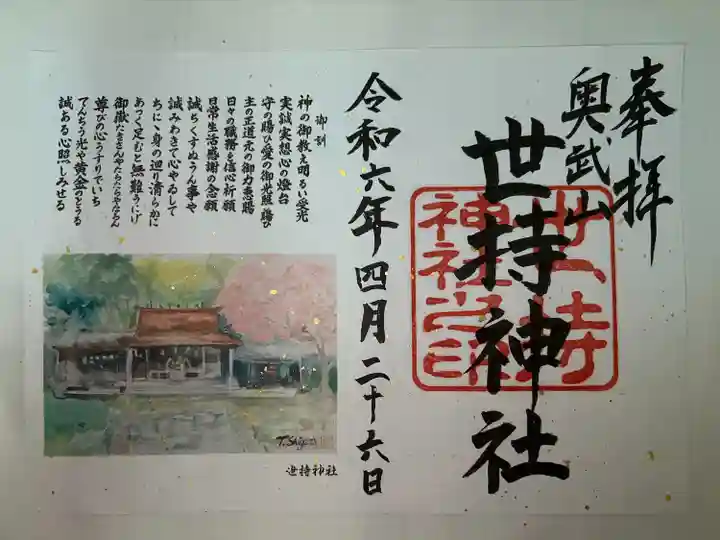 奉拝
奥武山
世持神社
世持神社之印
令和六年四月二十六日
御訓
神の御教え明るい受光
実誠実想心の燈台
守の賜ひ愛の御光照賜ひ
主の正道元の御力恵賜
日々の職務を信心祈願
日常生活感謝の念願
誠ちくすぬうん事や
誠みわきて心やゐして
ちにゝ身の廻り清らかに
あつく足むと無難うにげ
尊びの心うすりていち
てんちう光や黄金のとうる
誠ある心照しみせる
T.Shige
世持神社